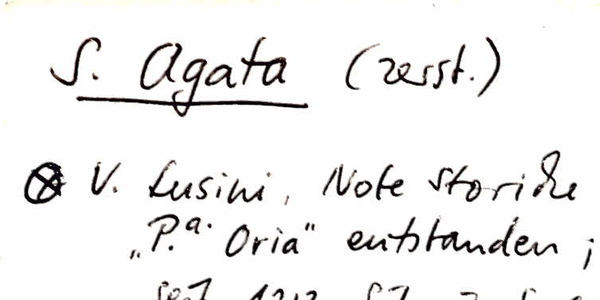 S. Agata (zerst.)
V. Lusini, Note storiche
„P.a. Oria" entstanden;